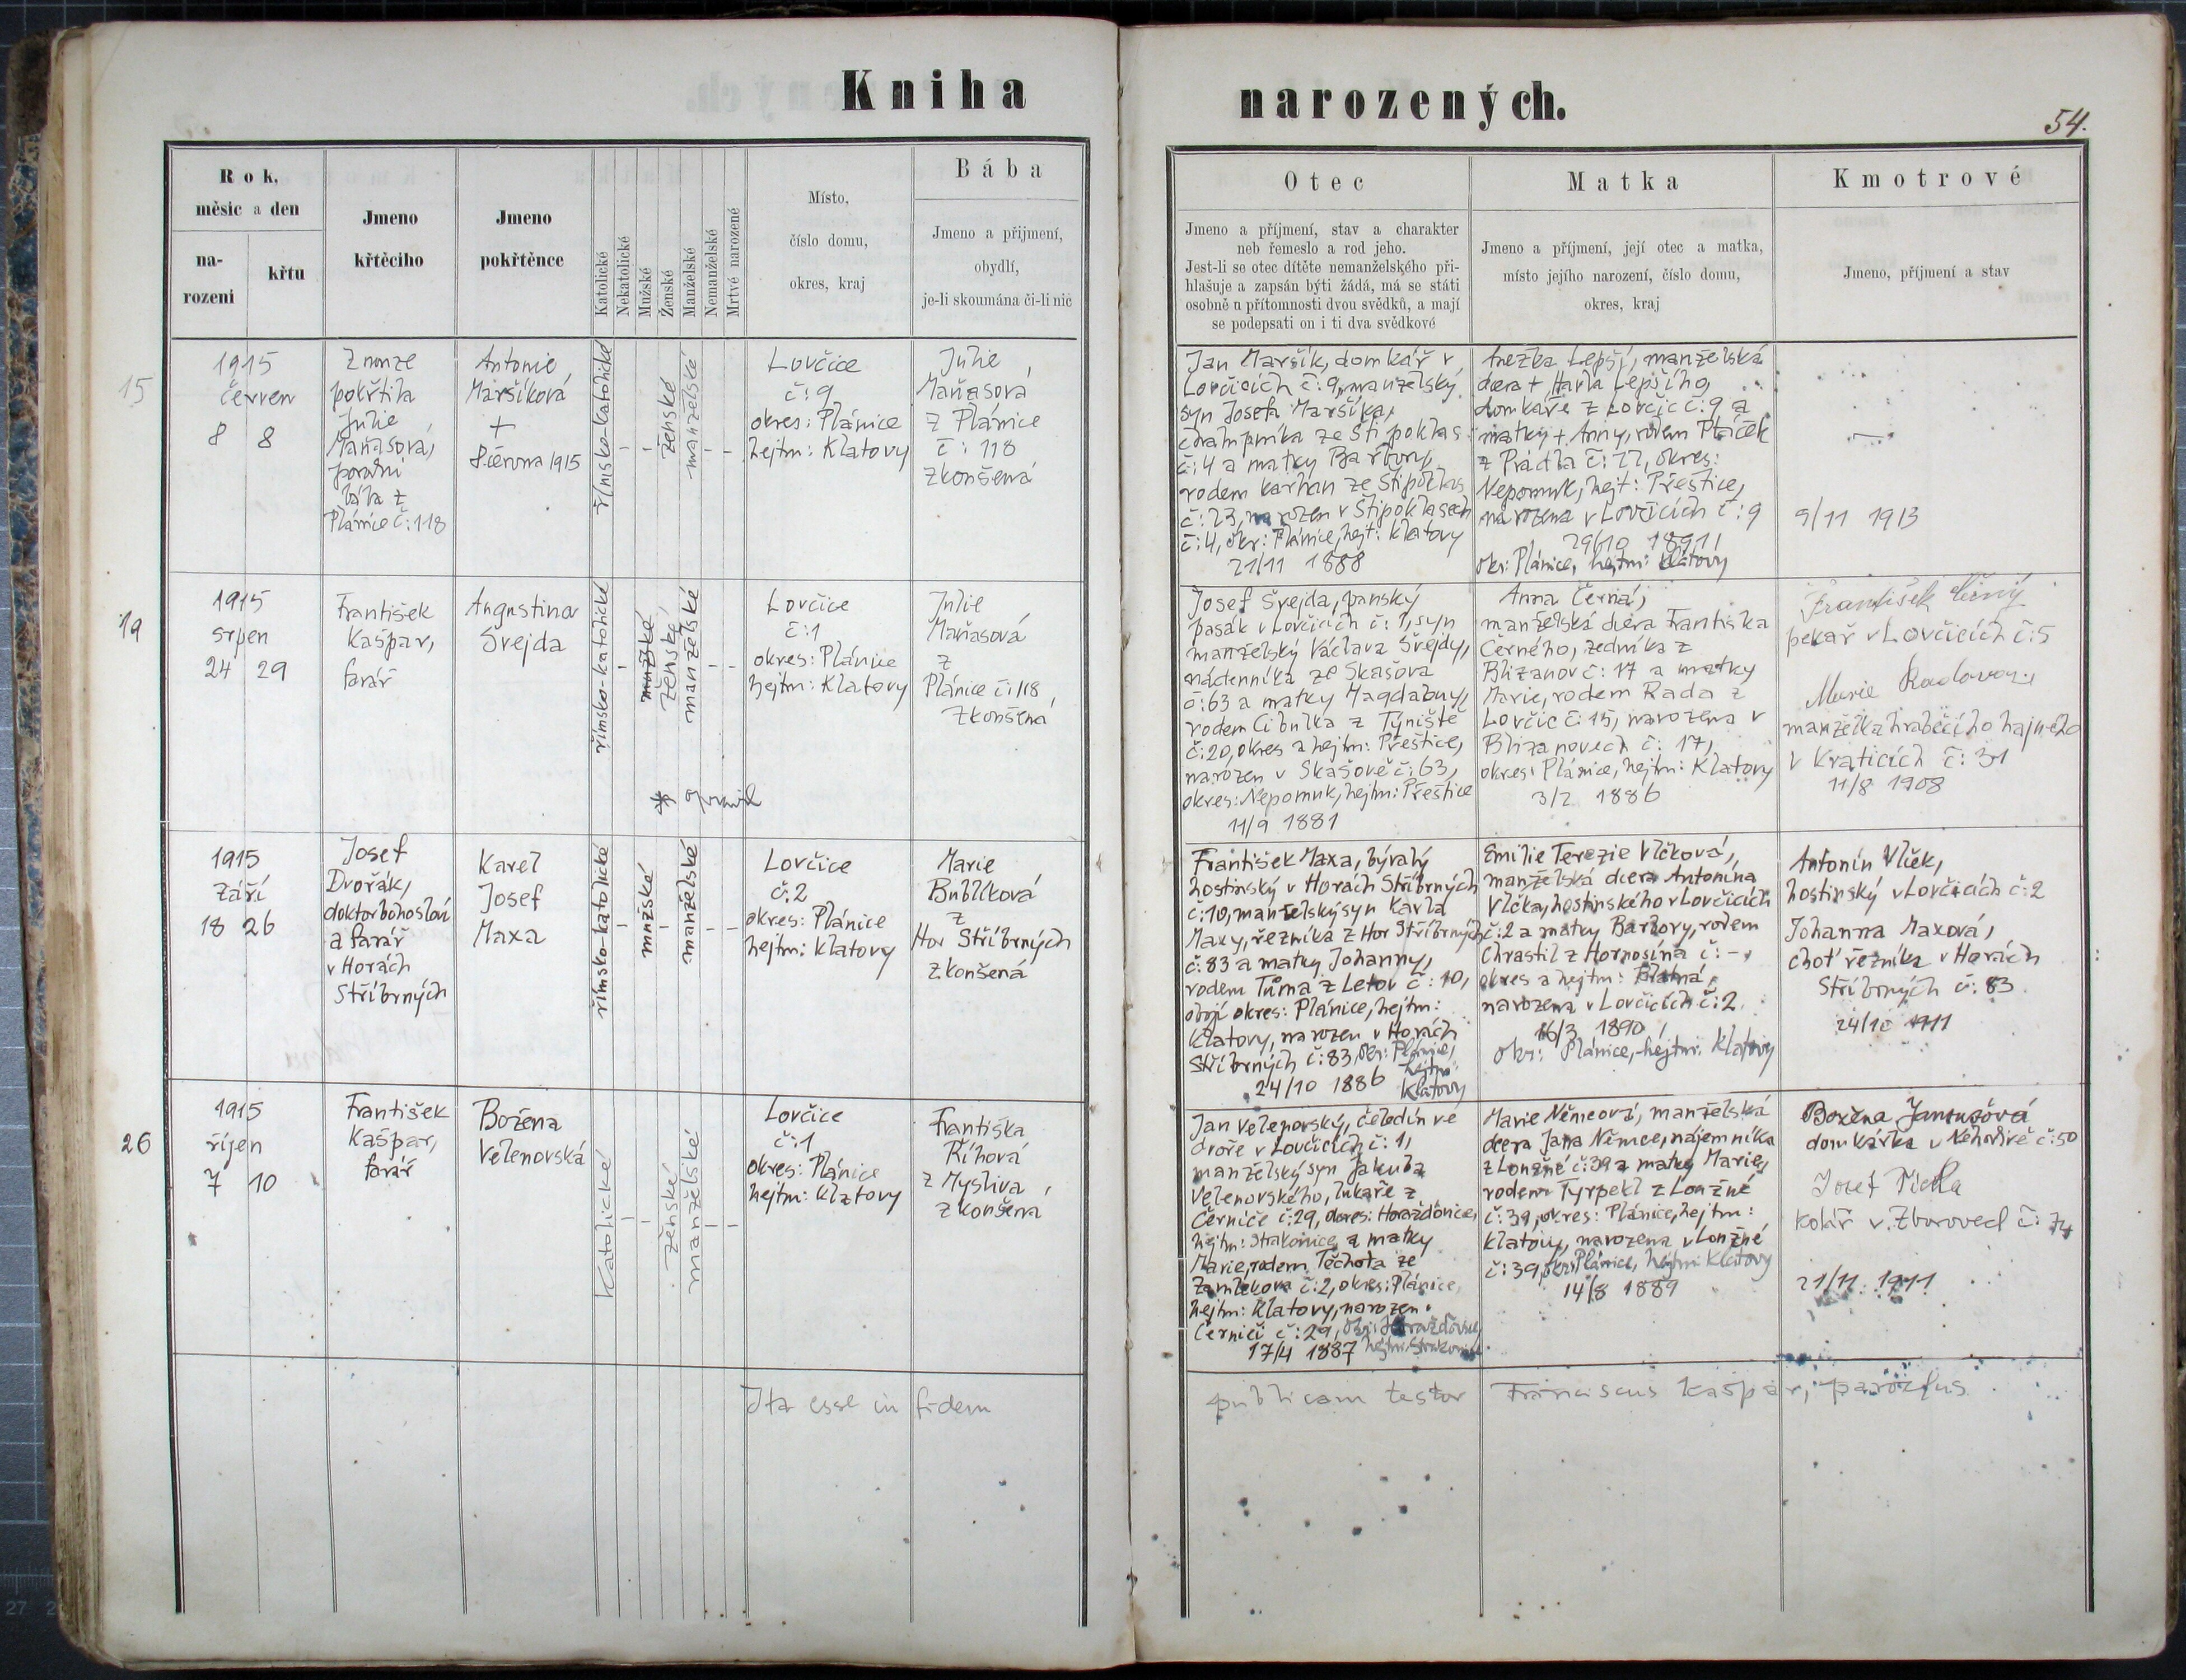 Kniha narozených.
54.
Rok, měsic a den
na-
rozeni
křtu
Jmeno
křtěciho
Jmeno
pokřtěnce
Katolické
Nekatolické
Mužské
Ženské
Manželské
Nemanželské
Mrtvé narozené
Místo,
číslo domu,
okres, kraj
Bába
Jmeno a přijmení,
obydlí,
je-li skoumána či-li nic
Otec
Jmeno a příjmení, stav a charakter
neb řemeslo a rod jeho.
Jest-li se otec dítěte nemanželského při-
hlašuje a zapsán býti žádá, má se státi
osobně u přítomnosti dvou svědků, a mají
se podepsati on i ti dva svědkové
Matka
Jmeno a příjmení, její otec a matka,
místo jejího narození, číslo domu,
okres, kraj
Kmotrové
Jmeno, příjmení a stav
15
1915
červen
8 8
Z nouze
pokřtila
Julie
Maňasová,
porodní
bába z
Plánice č: 118
Antonie
Maršíková
+
8. června 1915
římsko-katolické
-
-
ženské
manželské
-
-
Lovčice
č: 9
okres: Plánice
hejtm: Klatovy
Julie
Maňasová
z Plánice
č: 118
zkoušená
Jan Maršík, domkář v
Lovčicích č: 9, manželský
syn Josefa Maršíka,
ze Štipoklas
č: 4 a matky Barbory,
rodem Karhan ze Štipoklas
č: 23, narozen v Štipoklasech
č: 4, okr: Plánice, hejt: Klatovy
21/11 1888
Anežka Lepší, manželská
dcera + Havla Lepšího,
domkáře z Lovčic č: 9 a
matky + Anny, rodem Ptáček
z Prádla č: 22, okres:
Nepomuk, hejt: Přeštice,
narozena v Lovčicích č: 9
29/10 1891,
okr: Plánice, hejtm: Klatovy
9/11 1913
19
1915
srpen
24 29
František
Kašpar,
farář
Augustina
Švejda
římsko-katolické
-
mužské
ženské
manželské
-
-
Lovčice
č: 1
okres: Plánice
hejtm: Klatovy
Julie
Maňasová
z
Plánice č: 118
zkoušená
Josef Švejda, panský
pasák v Lovčicích č: 1, syn
manželský Václava Švejdy,
nádenníka ze Skašova
č: 63 a matky Magdaleny,
rodem Cibulka z Týniště
č: 20, okres a hejtm: Přeštice,
narozen v Skašově č: 63,
okres: Nepomuk, hejtm: Přeštice
11/9 1881
Anna Černá,
manželská dcera Františka
Černého, zedníka z
Blizanov č: 17 a matky
Marie, rodem Rada z
Lovčic č: 15, narozena v
Blizanovech č: 17,
okres: Plánice, hejtm: Klatovy
3/2 1886
František Černý
pekař v Lovčicích č: 5
Marie Radová,
manželka hraběcího hajného
v Kraticích č: 31
11/8 1908
1915
Září
18 26
Josef
Dvořák,
doktor bohosloví
a farář
v Horách
Stříbrných
Karel
Josef
Maxa
římsko-katolické
-
mužské
manželské
-
-
Lovčice
č: 2
okres: Plánice
hejtm: Klatovy
Marie
Bublíková
z
Hor Stříbrných
zkoušená
František Maxa, bývalý
hostinský v Horách Stříbrných
č: 10, manželský syn Karla
Maxy, řezníka z Hor Stříbrných
č: 83 a matky Johanny,
rodem Tůma z Letov č: 10,
obojí okres: Plánice, hejtm:
Klatovy, narozen v Horách
Stříbrných č: 83, okr: Plánice,
hejtm:
24/10 1886 Klatovy
Emilie Terezie Vlčková,
manželská dcera Antonína
Vlčka, hostinského v Lovčicích
č: 2 a matky Barbory, rodem
Chrastil z Hornosína č: -,
okres a hejtm: Blatná,
narozena v Lovčicích č: 2
16/3 1890,
okr: Plánice, hejtm: Klatovy
Antonín Vlček,
hostinský v Lovčicích č: 2
Johanna Maxová,
choť řezníka v Horách
Stříbrných č: 83
24/10 1911
26
1915
říjen
7 10
František
Kašpar,
farář
Božena
Velenovská
Katolické
-
-
ženské
manželské
-
-
Lovčice
č: 1
okres: Plánice
hejtm: Klatovy
Františka
Říhová
z Myslíva,
zkoušena
Jan Velenovský, čeledín ve
dvoře v Lovčicích č: 1,
manželský syn Jakuba
Velenovského, lukaře z
Černíče č: 29, okres: Horažďovice,
hejtm: Strakonice a matky
Marie, rodem Těchota ze
Zamlekova č: 2, okres: Plánice,
hejtm: Klatovy, narozen
Černíči č: 29, okr: Horažďovice,
17/4 1887 hejtm: Strakonice
Marie Němcová, manželská
dcera Jana Němce, nájemníka
z Loužné č: 39 a matky Marie,
rodem Tyrpekl z Loužné
č: 39, okres: Plánice, hejtm:
Klatovy, narozena v Loužné
č: 39, okr: Plánice, hejtm: Klatovy
14/8 1889
Božena
domkářka v Nehodivě č: 50
Josef
kolář v Zborovech č: 74
21/11 1911
Ita esse in fidem publicam testor Franciscus Kašpar, parochus